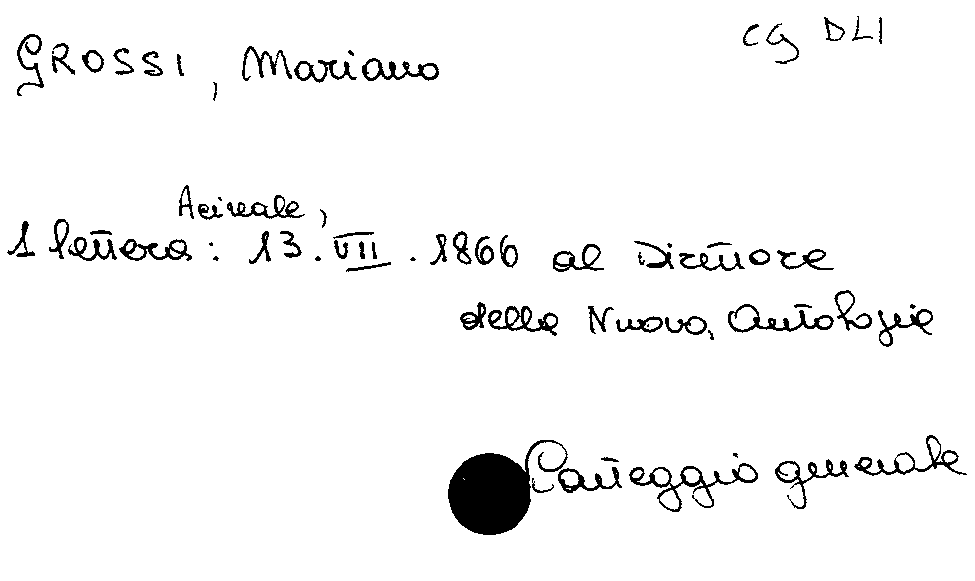 GROSSI, Mariano
CG DLI
Acireale,
1 lettera: 13.VII.1866 al Direttore
della Nuova Antologia
Carteggio generale